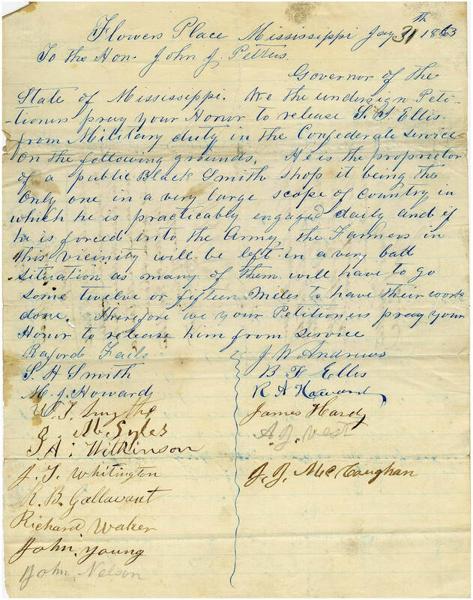 Flowers Place Mississippi Jany 31th 1863
To the Hon. John J. Pettus
Governor of the
State of Mississippi. We the undersign Peti-
tioners pray your Honor to release Ellis
from Military duty in the Confederate Service
on the following grounds. He is the proprietor
of a public Black Smith shop it being the
only one in a very large scope of country in
which he is practicably engaged daily and if
he is forced into the Army the Farmers in
this vicinity will be left in a very bad
situation as many of them will have to go
some twelve or fifteen Miles to have their work
done. Therefore we your Petitioners pray your
Honor to release him from service
J. W. Andrews
S H Smith
B F Ellis
M. J. Howard
R A Howard
James Hardy
J. M. Syles
A J West
A. Wilkinson
J. T. Whitington
J. J. McCaughan
R. B. Gallawant
Richard Walker
John Young
John Nelson